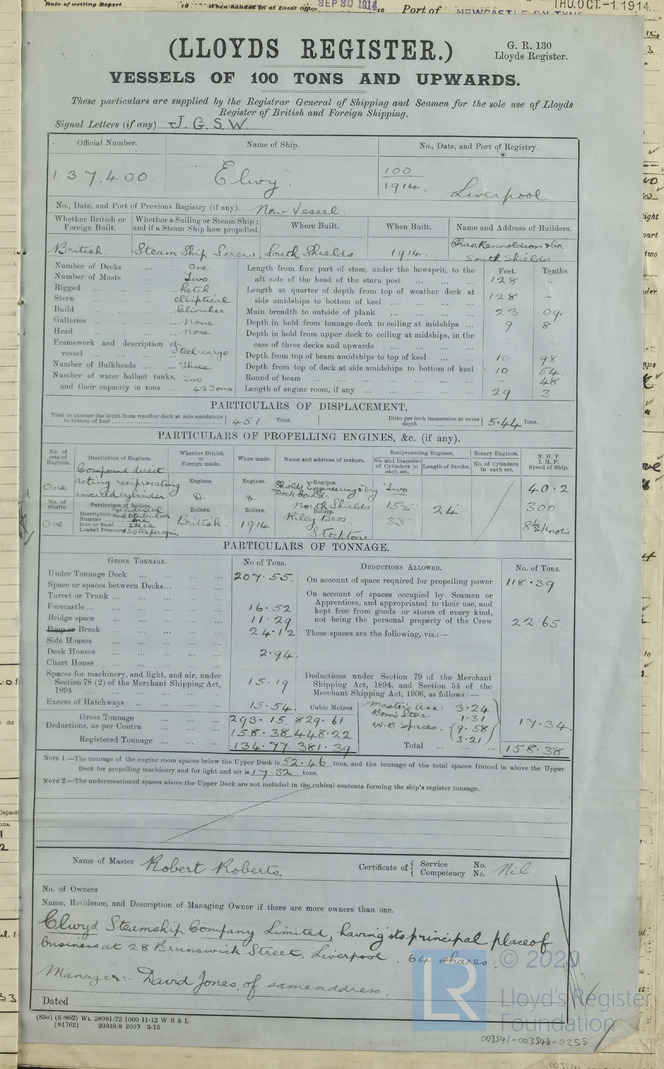 Date of writing Report
When handed in at Local Office SEP 30 1914 Port of NEWCASTLE ON TYNE THU. OCT.-1. 1914
(LLOYDS REGISTER.)
G. R. 130
Lloyds Register.
VESSELS OF 100 TONS AND UPWARDS.
These particulars are supplied by the Registrar General of Shipping and Seamen for the sole use of Lloyds
Register of British and Foreign Shipping.
Signal Letters (if any) J.G.S.W.
Official Number. Name of Ship. No., Date, and Port of Registry.
137,400. "Elwy" 100/1914. Liverpool
No., Date, and Port of Previous Registry (if any). New Vessel.
Whether British or Foreign Built. Whether a Sailing or Steam Ship; and if a Steam Ship how propelled. Where Built. When Built. Name and Address of Builders.
British Steam Ship Screw South Shields 1914. Chas Rennoldson & Co. South Shields
Number of Decks One
Number of Masts Two
Rigged Ketch
Stern elliptical
Build Clincher
Galleries None
Head None
Framework and description of vessel Steel-cargo
Number of Bulkheads Three
Number of water ballast tanks, and their capacity in tons Two 43 Tons
Feet. Tenths
Length from fore part of stem, under the bowsprit, to the
aft side of the head of the stern post 128
Length at quarter of depth from top of weather deck at
side amidships to bottom of keel 128 -
Main breadth to outside of plank 23 09.
Depth in hold from tonnage deck to ceiling at midships 9 8
Depth in hold from upper deck to ceiling at midships, in the
case of three decks and upwards
Depth from top of beam amidships to top of keel 10 98
Depth from top of deck at side amidships to bottom of keel 10 54
Round of beam - 48
Length of engine room, if any 29 3
PARTICULARS OF DISPLACEMENT.
Total to quarter the depth from weather deck at side amidships to bottom of keel 451 Tons. Ditto per inch immersion at same depth 5.44 Tons.
PARTICULARS OF PROPELLING ENGINES, &c. (if any).
No. of sets of Engines. Description of Engines. Whether British or Foreign made. When made. Name and address of makers. Reciprocating Engines. Rotary Engines. N. H. P. I. H. P. Speed of Ship.
No. and Diameter of Cylinders in each set. Length of Stroke. No. of Cylinders in each set.
One Compound direct acting reciprocating inverted cylinder
Engines. Engines. Engines. Shields Engineering & Dry Dock Co Ld. North Shields
Two 15½" 33" 24" 40.2 300 8½ knots
No. of Shafts. Particulars of Boilers.
Description
Number one
Iron or Steel steel
Loaded Pressure
One Boilers. British Boilers. 1914 Boilers Riley Bros. Stockton
PARTICULARS OF TONNAGE.
GROSS TONNAGE. No. of Tons. DEDUCTIONS ALLOWED. No. of Tons.
Under Tonnage Deck 207.55.
Space or spaces between Decks
Turret or Trunk
Forecastle 16.52
Bridge space 11.29
Poop or Break 24.12
Side Houses
Deck Houses 2.94.
Chart House
Spaces for machinery, and light, and air, under
Section 78 (2) of the Merchant Shipping Act,
1894 15.19
Excess of Hatchways 15.54. Cubic Metres
Gross Tonnage 293.15 829.61
Deductions, as per Contra 158.38 448.22
Registered Tonnage 134.77 381.39
On account of space required for propelling power 118.39
On account of spaces occupied by Seamen or
Apprentices, and appropriated to their use, and
kept free from goods or stores of every kind,
not being the personal property of the Crew 22.65.
These spaces are the following, viz.:—
Deductions under Section 79 of the Merchant
Shipping Act, 1894, and Section 54 of the
Merchant Shipping Act, 1906, as follows:—
Masters Acc. 3.24
Bosns Store 1.31
W.B Spaces {9.58
3.21} 17.34.
Total 158.38
NOTE 1.—The tonnage of the engine room spaces below the Upper Deck is 52.46 tons, and the tonnage of the total spaces framed in above the Upper
Deck for propelling machinery and for light and air is 17.32 tons.
NOTE 2.—The undermentioned spaces above the Upper Deck are not included in the cubical contents forming the ship's register tonnage.
Name of Master Robert Roberts. Certificate of { Service No. Competency No. Nil
No. of Owners
Name, Residence, and Description of Managing Owner if there are more owners than one.
Clwyd Steamship Company Limited, having its principal place of
business at 28 Brunswick Street, Liverpool. 64 shares.
Manager:- David Jones, of same address.
Dated
(830) (6/862) Wt. 28981/72 1000 11-12 W B & L
(81762) 20349/8 2000 3-13
© 2020
LR
Lloyd's Register
Foundation
003541-003548-0255